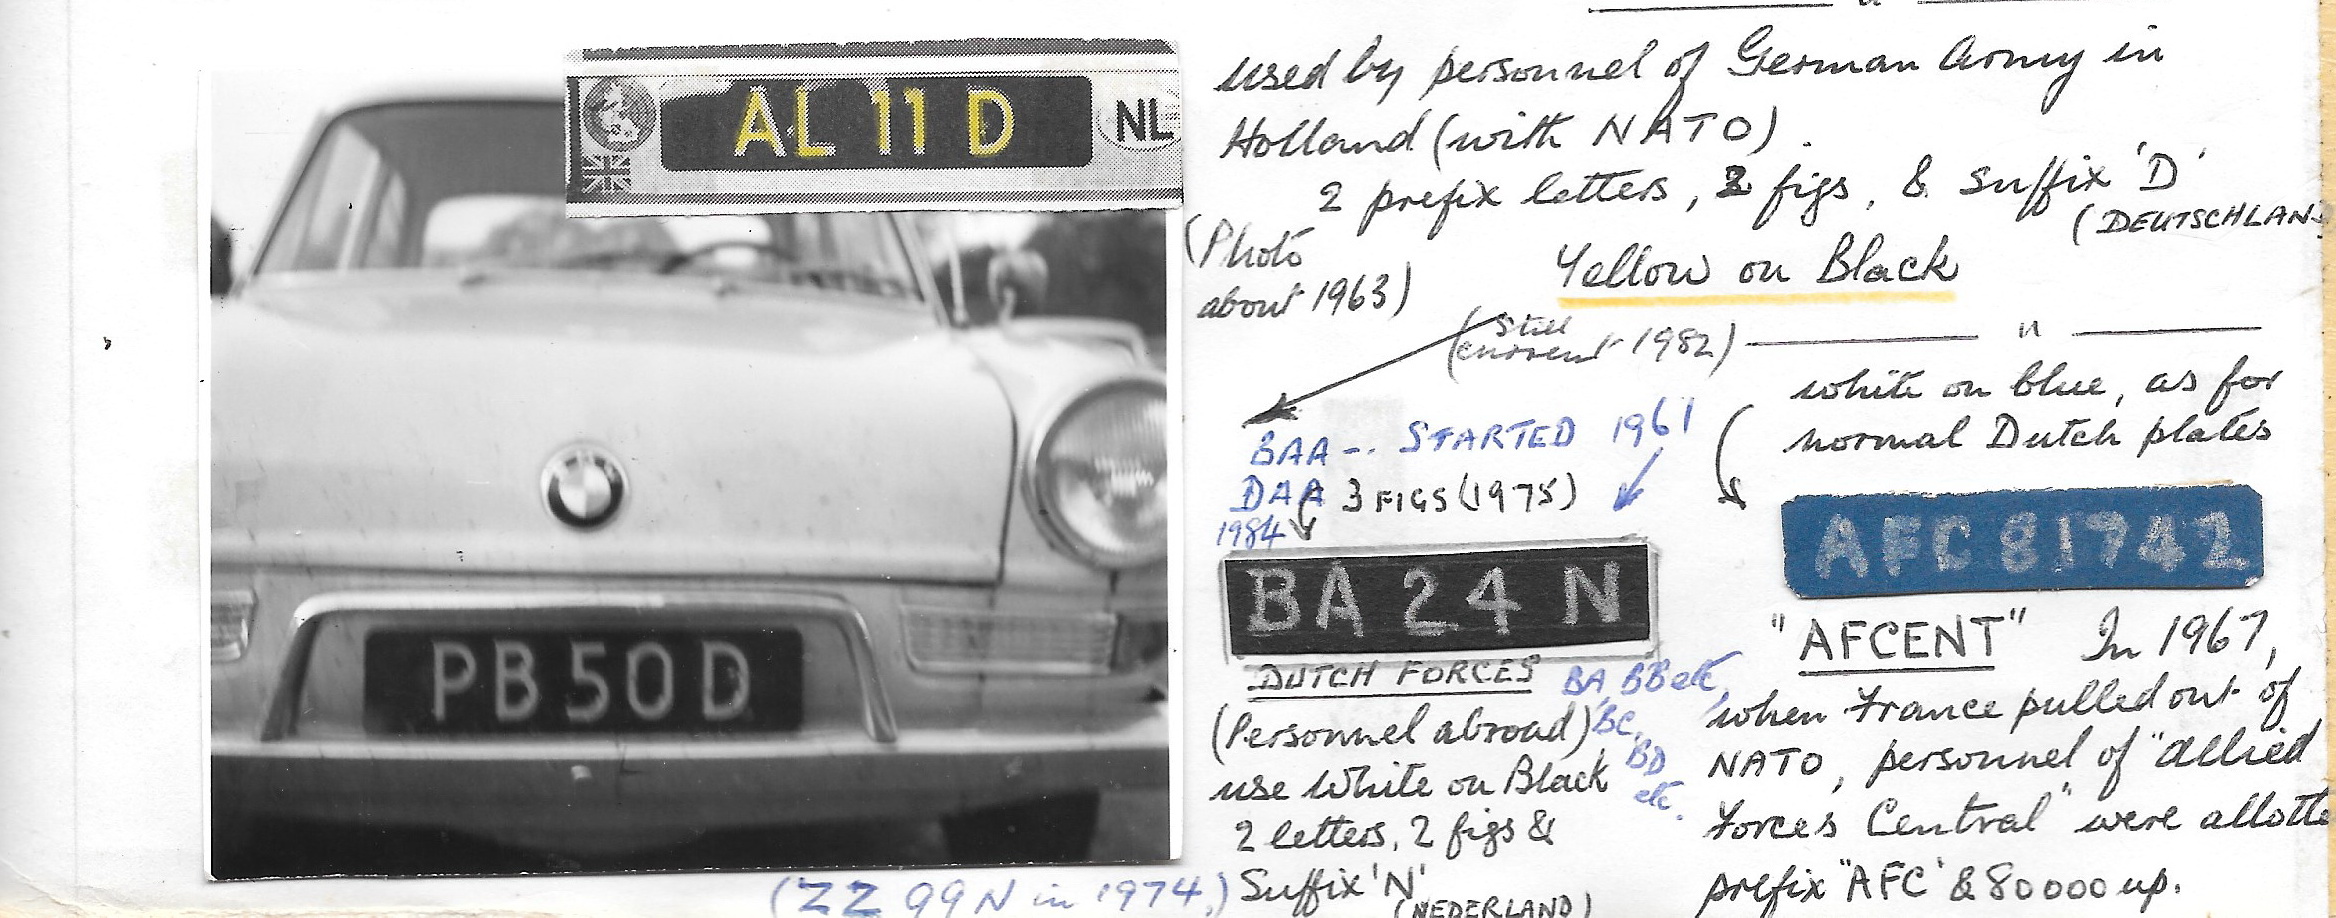 AL 11 D
NL
PB 50 D
used by personnel of German Army in
Holland (with NATO).
2 prefix letters, 2 figs, & suffix 'D'
(DEUTSCHLAN
(Photo
about 1963)
Yellow on Black
(still
current 1982) ——— " ———
white on blue, as for
normal Dutch plates
BAA -.. STARTED 1961
DAA 3 FIGS (1975)
1984
BA 24 N
AFC 81742
DUTCH FORCES
(Personnel abroad)
use White on Black
2 letters, 2 figs &
Suffix 'N'
(NEDERLAND)
BA, BB etc,
BC,
BD
etc.
(ZZ 99 N in 1974,)
"AFCENT" In 1967,
when France pulled out of
NATO, personnel of "Allied
Forces Central" were allotte
prefix "AFC' & 80000 up.